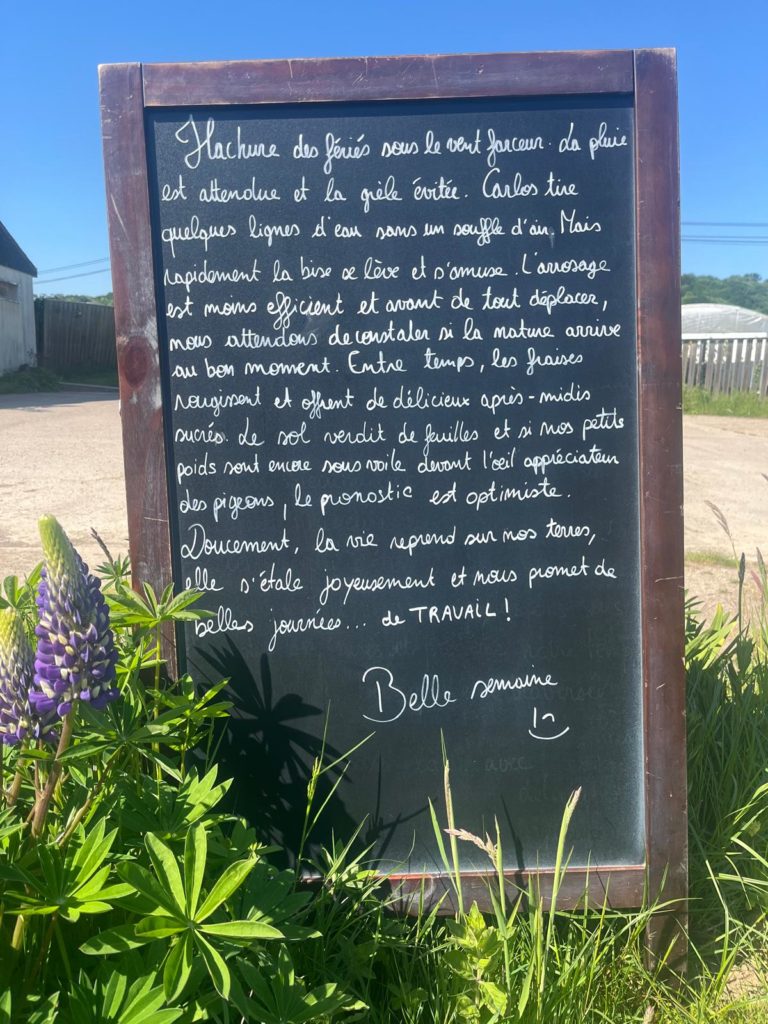 Hachure des fériés sous le vent farceur. La pluie
est attendue et la grêle évitée. Carlos tire
quelques lignes d'eau sans un souffle d'air. Mais
rapidement la bise se lève et s'amuse. L'arrosage
est moins efficient et avant de tout déplacer,
nous attendons de constater si la nature arrive
au bon moment. Entre temps, les fraises
rougissent et offrent de délicieux après-midis
sucrés. Le sol verdit de feuilles et si nos petits
poids sont encore sous voile devant l'oeil appréciateur
des pigeons, le pronostic est optimiste.
Doucement, la vie reprend sur nos terres,
elle s'étale joyeusement et nous promet de
belles journées... de TRAVAIL !
Belle semaine